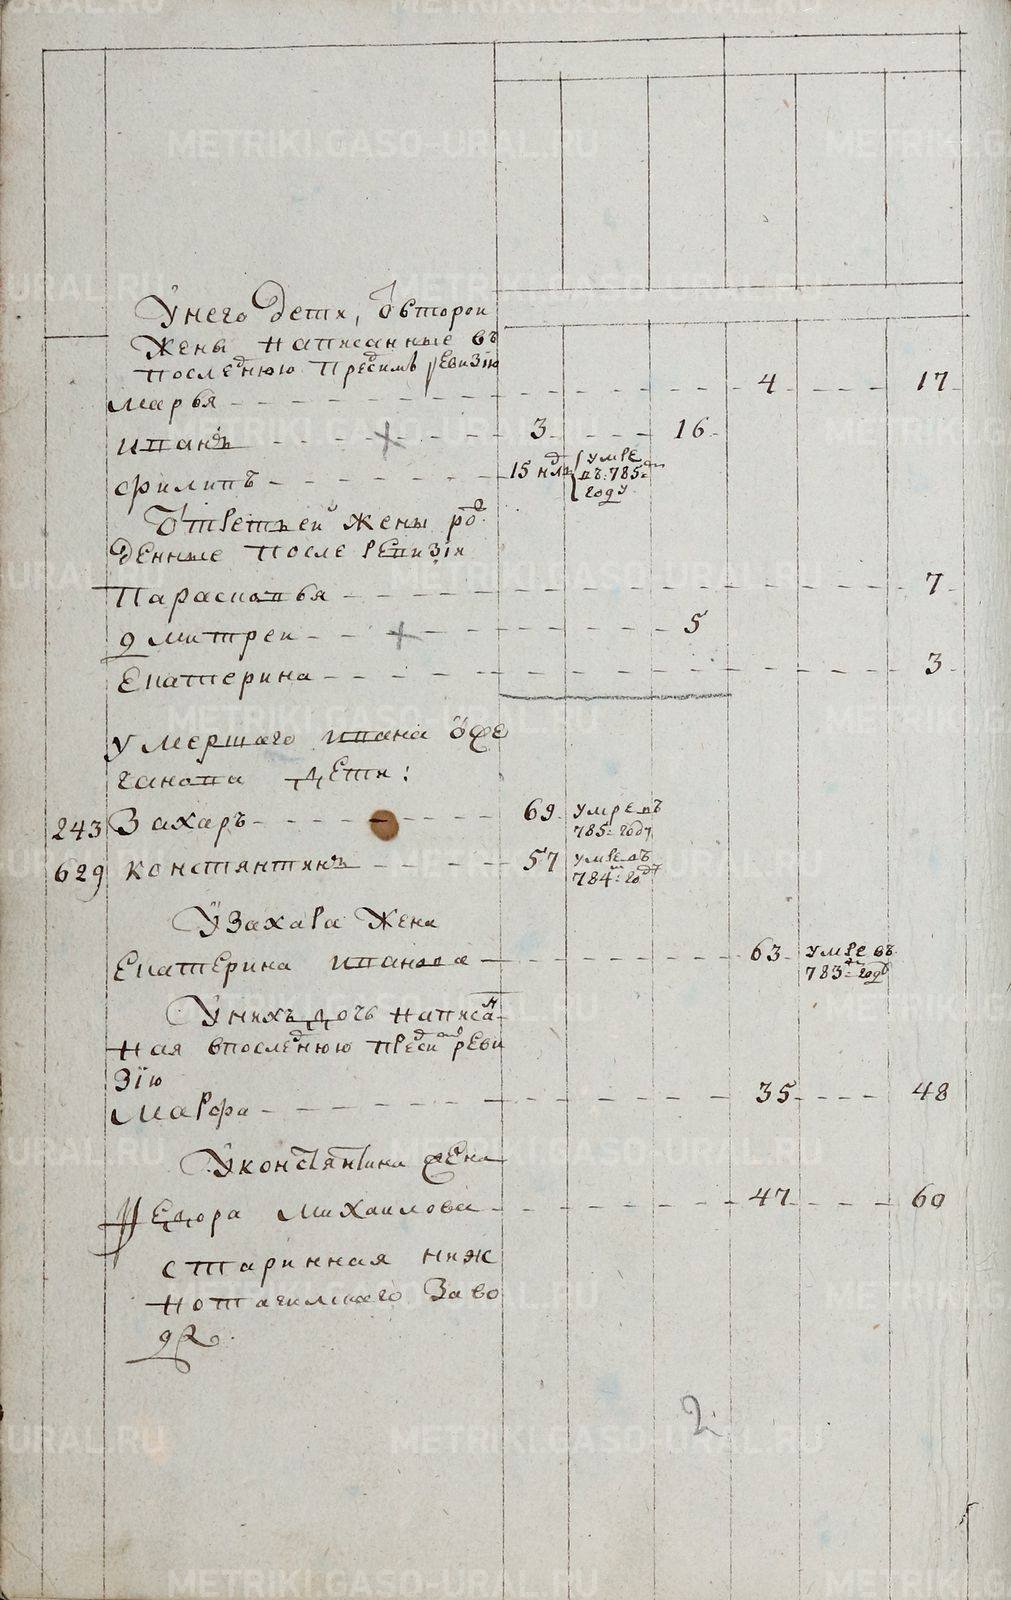 У него дети, от второй
жены написанные въ
последнюю пред симъ ревизiю
Марья 4 17
Иванъ 3 16
Филипъ 15 нед умре
въ 785м
году
От третьей жены рож
денные после ревизiи
Парасковья 7
Дмитрей 5
Екатерина 3
умершаго Ивана
дети:
243 Захаръ 69 умре въ
785 году
629 Констянтинъ 57 умре въ
784м году
У Захара жена
Екатерина Иванова 63 умре въ
783м году
У нихъ дочь написан
ная в последнюю пред сим реви
зiю
Марфа 35 48
У Констянтина жена
Федора Михаилова 47 60
старинная ниж
нотагилскаго заво
да.
2
METRIKI.GASO-URAL.RU